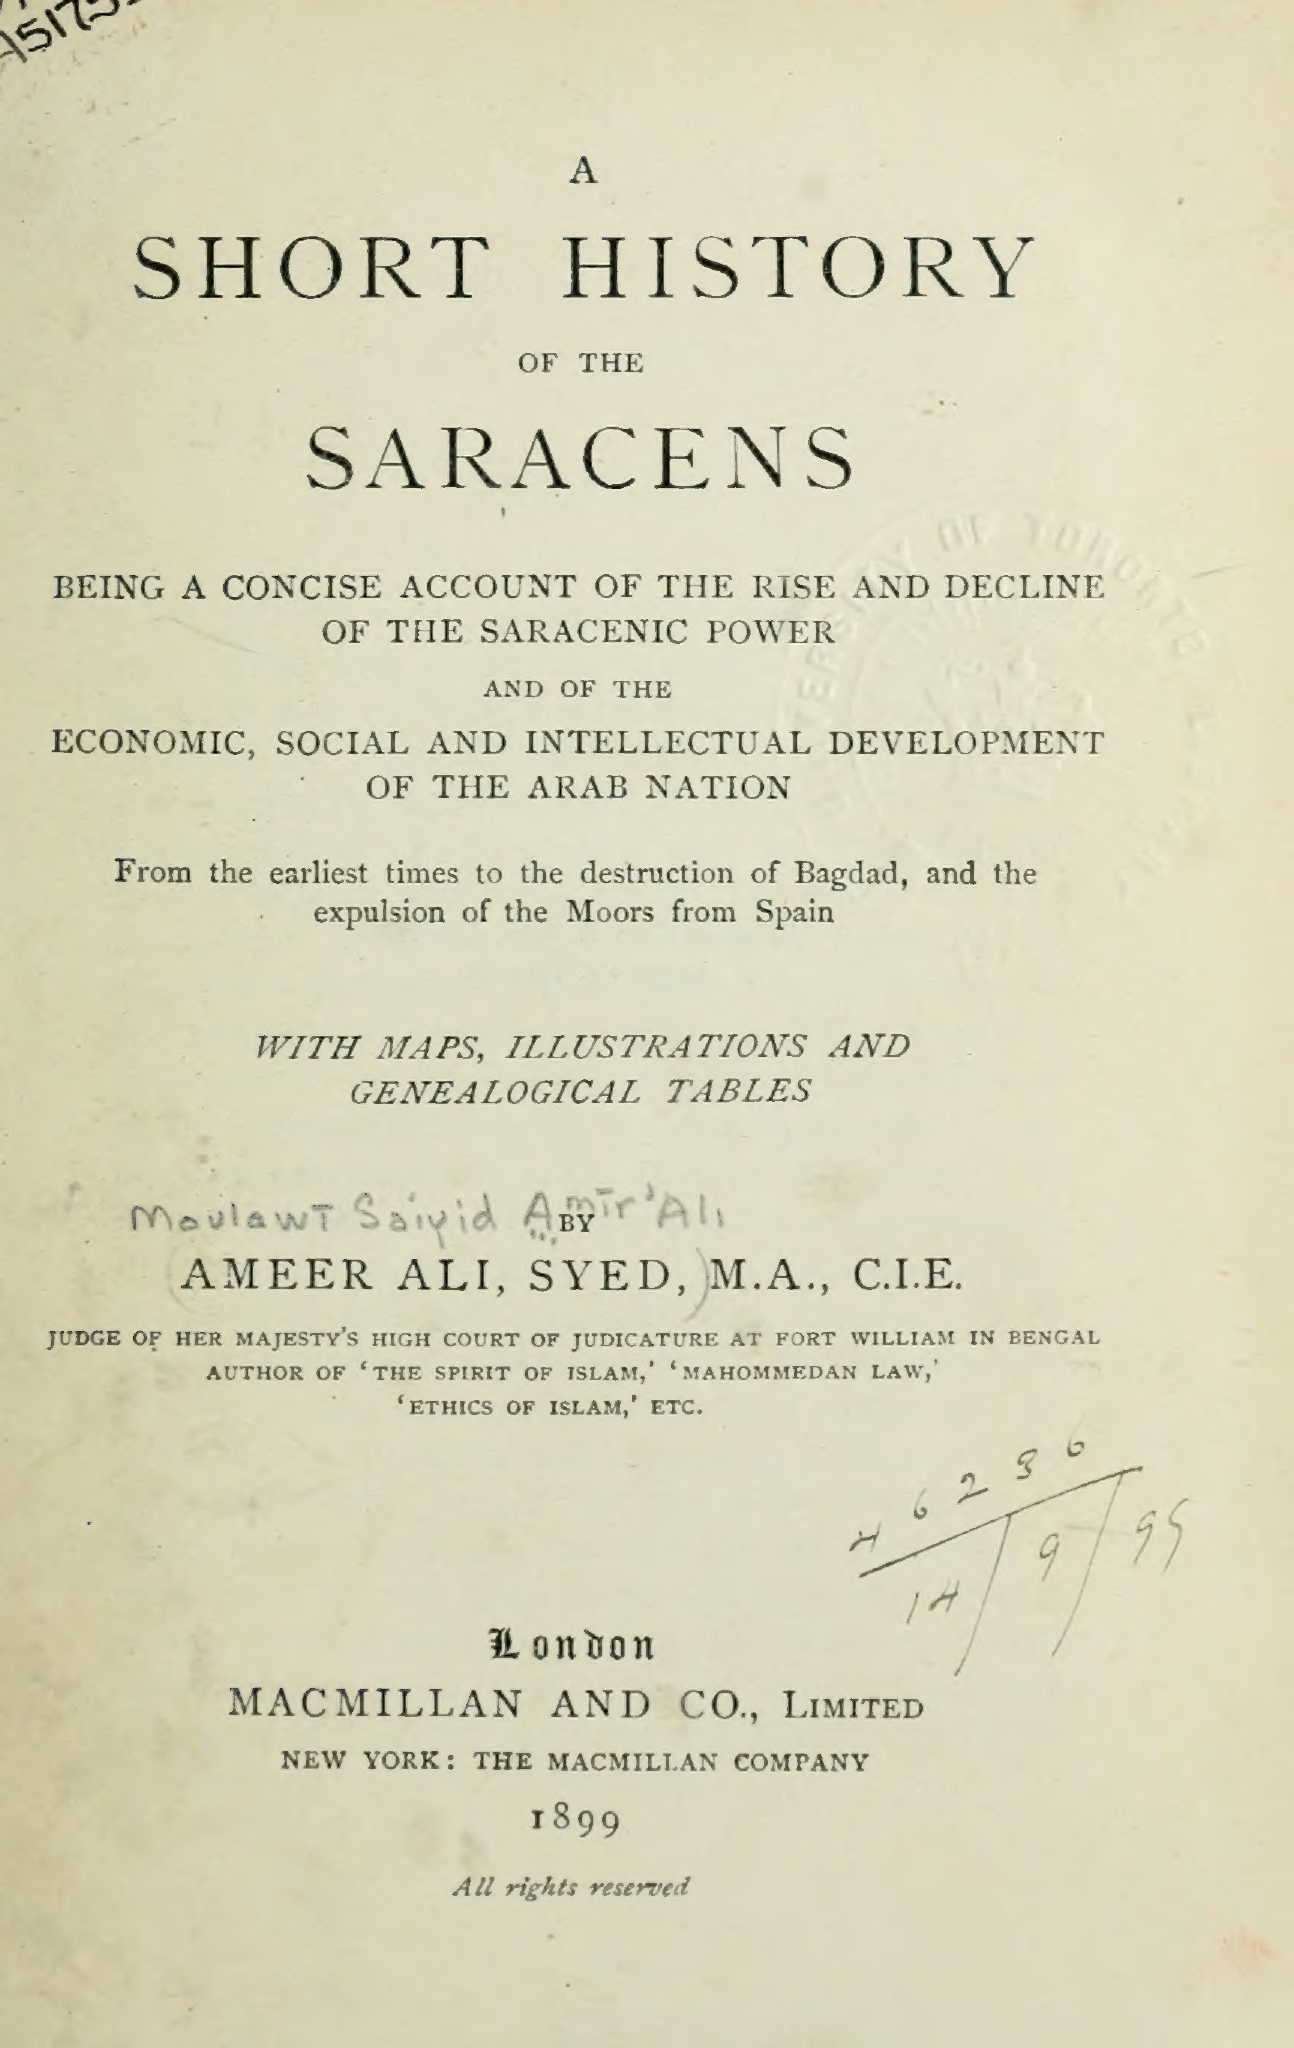 A
SHORT HISTORY
OF THE
SARACENS
BEING A CONCISE ACCOUNT OF THE RISE AND DECLINE
OF THE SARACENIC POWER
AND OF THE
ECONOMIC, SOCIAL AND INTELLECTUAL DEVELOPMENT
OF THE ARAB NATION
From the earliest times to the destruction of Bagdad, and the
expulsion of the Moors from Spain
WITH MAPS, ILLUSTRATIONS AND
GENEALOGICAL TABLES
Maulawī Saiyid Amīr 'Ali
BY
AMEER ALI, SYED, M.A., C.I.E.
JUDGE OF HER MAJESTY'S HIGH COURT OF JUDICATURE AT FORT WILLIAM IN BENGAL
AUTHOR OF 'THE SPIRIT OF ISLAM,' 'MAHOMMEDAN LAW,'
'ETHICS OF ISLAM,' ETC.
46236
14/9/95
London
MACMILLAN AND CO., LIMITED
NEW YORK: THE MACMILLAN COMPANY
1899
All rights reserved